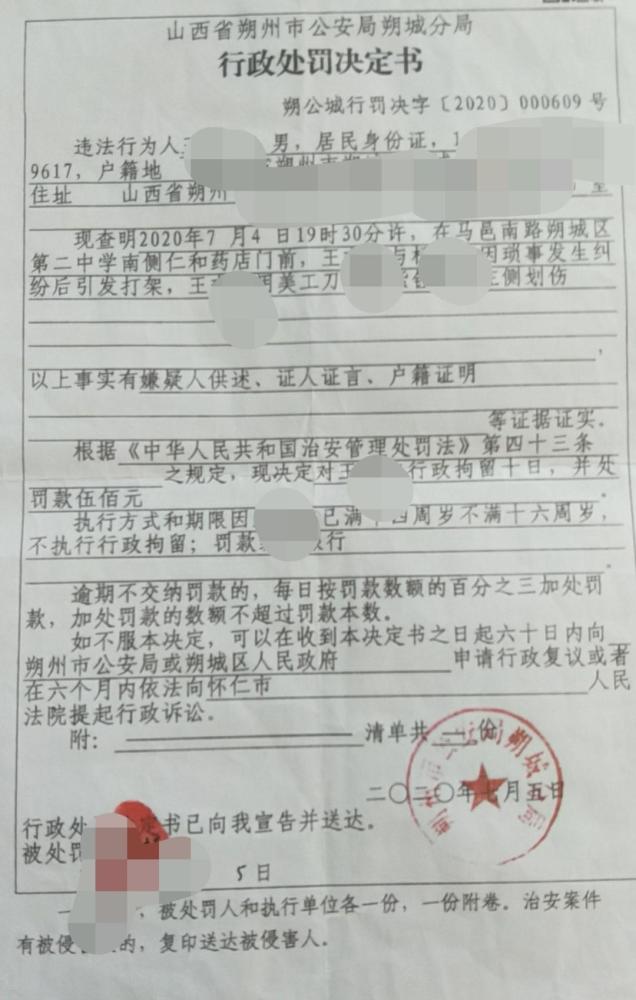 山西省朔州市公安局朔城分局
行政处罚决定书
朔公城行罚决字〔2020〕000609号
违法行为人王 男，居民身份证，1
9617，户籍地 朔州市朔
住址 山西省朔州 室
现查明2020年7月4日19时30分许，在马邑南路朔城区
第二中学南侧仁和药店门前，王 与 因琐事发生纠
纷后引发打架，王 用美工刀 侧划伤
，
以上事实有嫌疑人供述、证人证言、户籍证明
等证据证实．
根据《中华人民共和国治安管理处罚法》第四十三条
之规定，现决定对王 行政拘留十日，并处
罚款伍佰元 .
执行方式和期限因 已满十四周岁不满十六周岁，
不执行行政拘留；罚款 行
.
逾期不交纳罚款的，每日按罚款数额的百分之三加处罚
款，加处罚款的数额不超过罚款本数．
如不服本决定，可以在收到本决定书之日起六十日内向
朔州市公安局或朔城区人民政府 申请行政复议或者
在六个月内依法向怀仁市 人民
法院提起行政诉讼．
附： 清单共 一 份
二〇二〇年七月五日
行政处 定书已向我宣告并送达．
被处罚
5日
一 ，被处罚人和执行单位各一份，一份附卷。治安案件
有被侵 的，复印送达被侵害人．